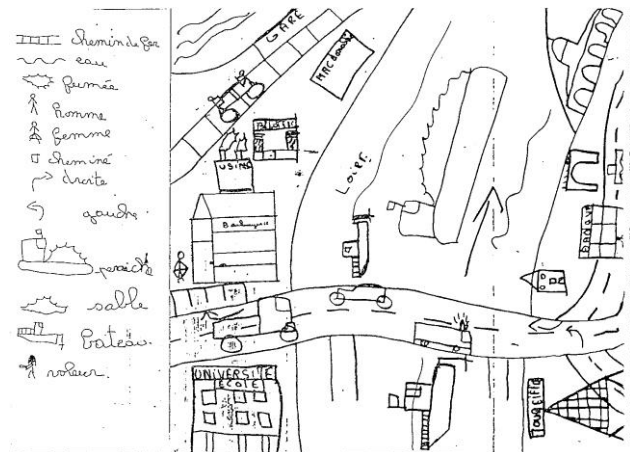 chemin de fer
eau
fumée
homme
femme
cheminé
droite
gauche
peniche
sable
bateau
voleur
GARE
MACdonald
USINE
Loire
BANQUE
UNIVERSITE
ECOLE
TOUR EIFFEL